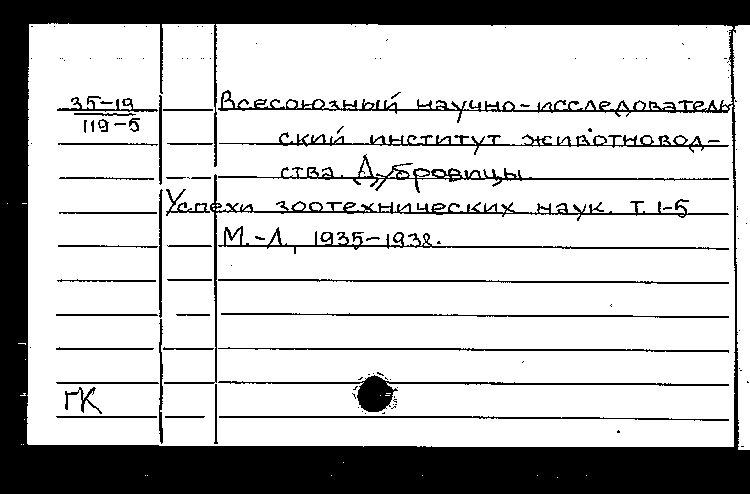 35-19
119-5
Всесоюзный научно-исследователь
ский институт животновод-
ства. Дубровицы.
Успехи зоотехнических наук. Т. 1-5
М.-Л., 1935-1938.
ГК